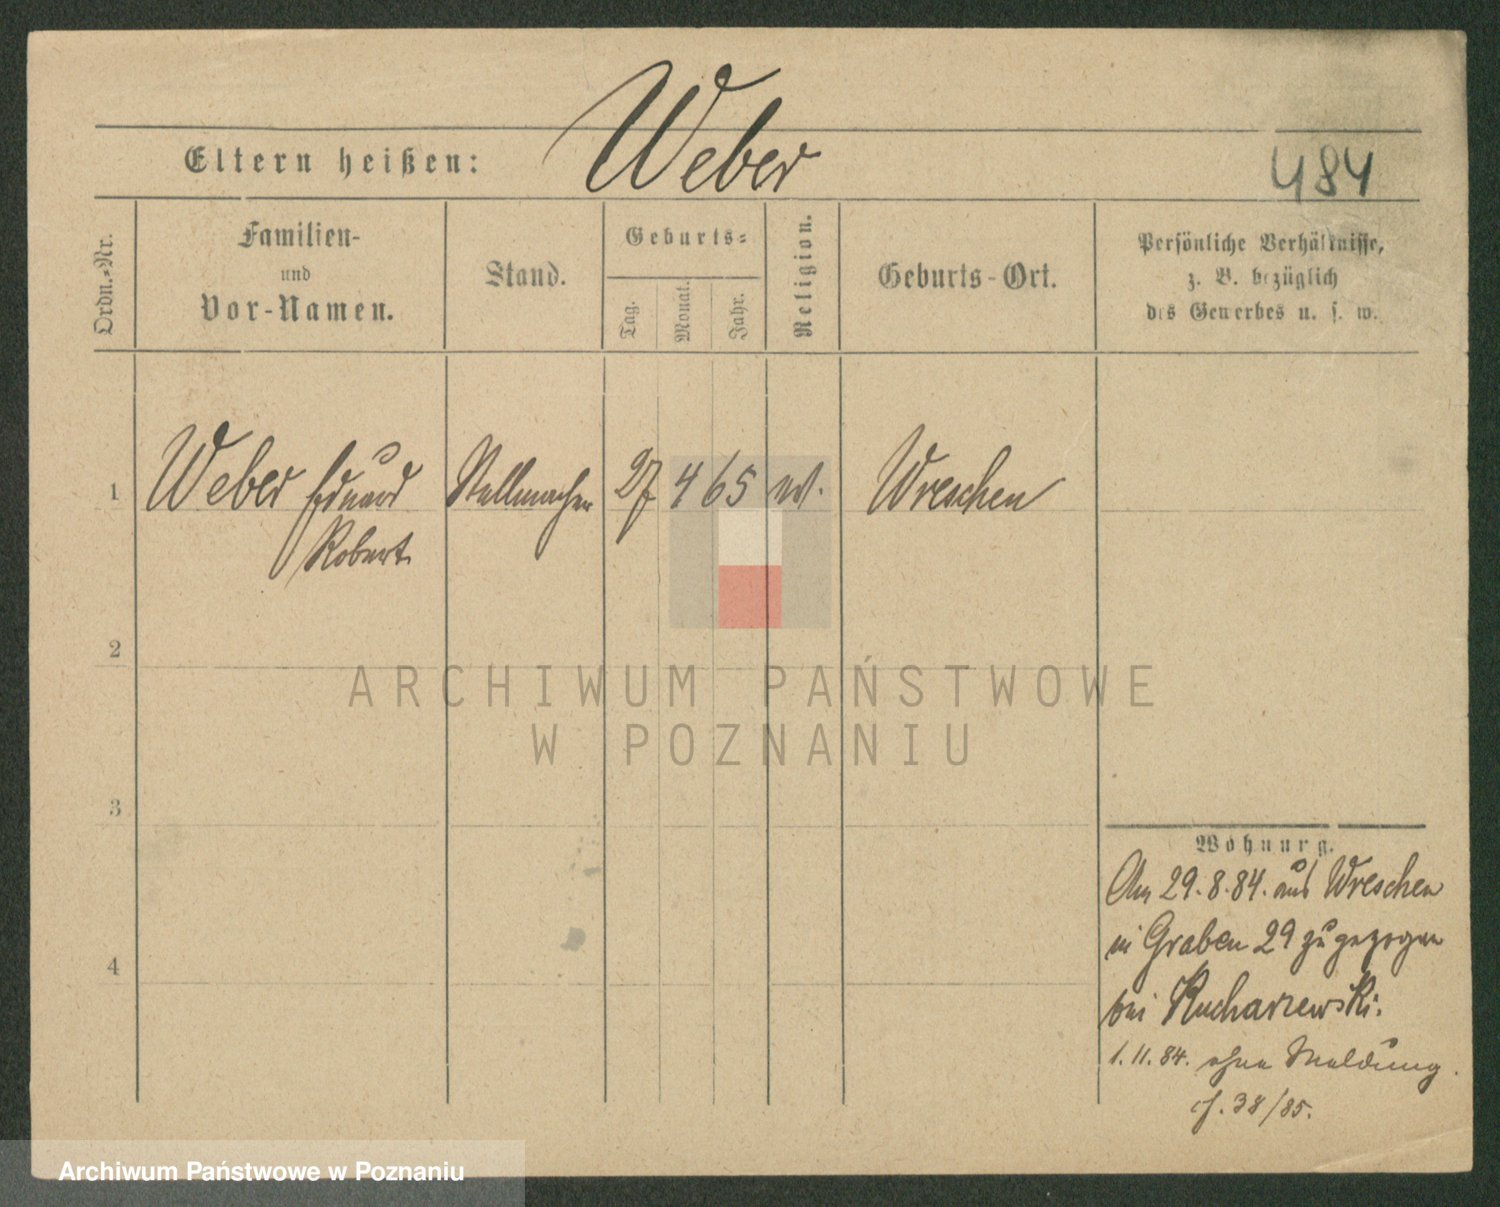 Weber
Eltern heißen:
484
Ordn.-Nr.
Familien-
und
Vor-Namen.
Stand.
Geburts-
Tag.
Monat.
Jahr.
Religion.
Geburts-Ort.
Persönliche Verhältnisse,
z. B. bezüglich
des Gewerbes u. s. w.
1 Weber Eduard Stellmacher 27 4 65 ev. Wreschen
Robert
2
3
4
Wohnung.
Am 29.8.84. aus Wreschen
in Graben 29 zugezogen
bei Kucharzewski.
1.11.84. ohne Meldung.
cf. 38/85.
ARCHIWUM PAŃSTWOWE
W POZNANIU
Archiwum Państwowe w Poznaniu